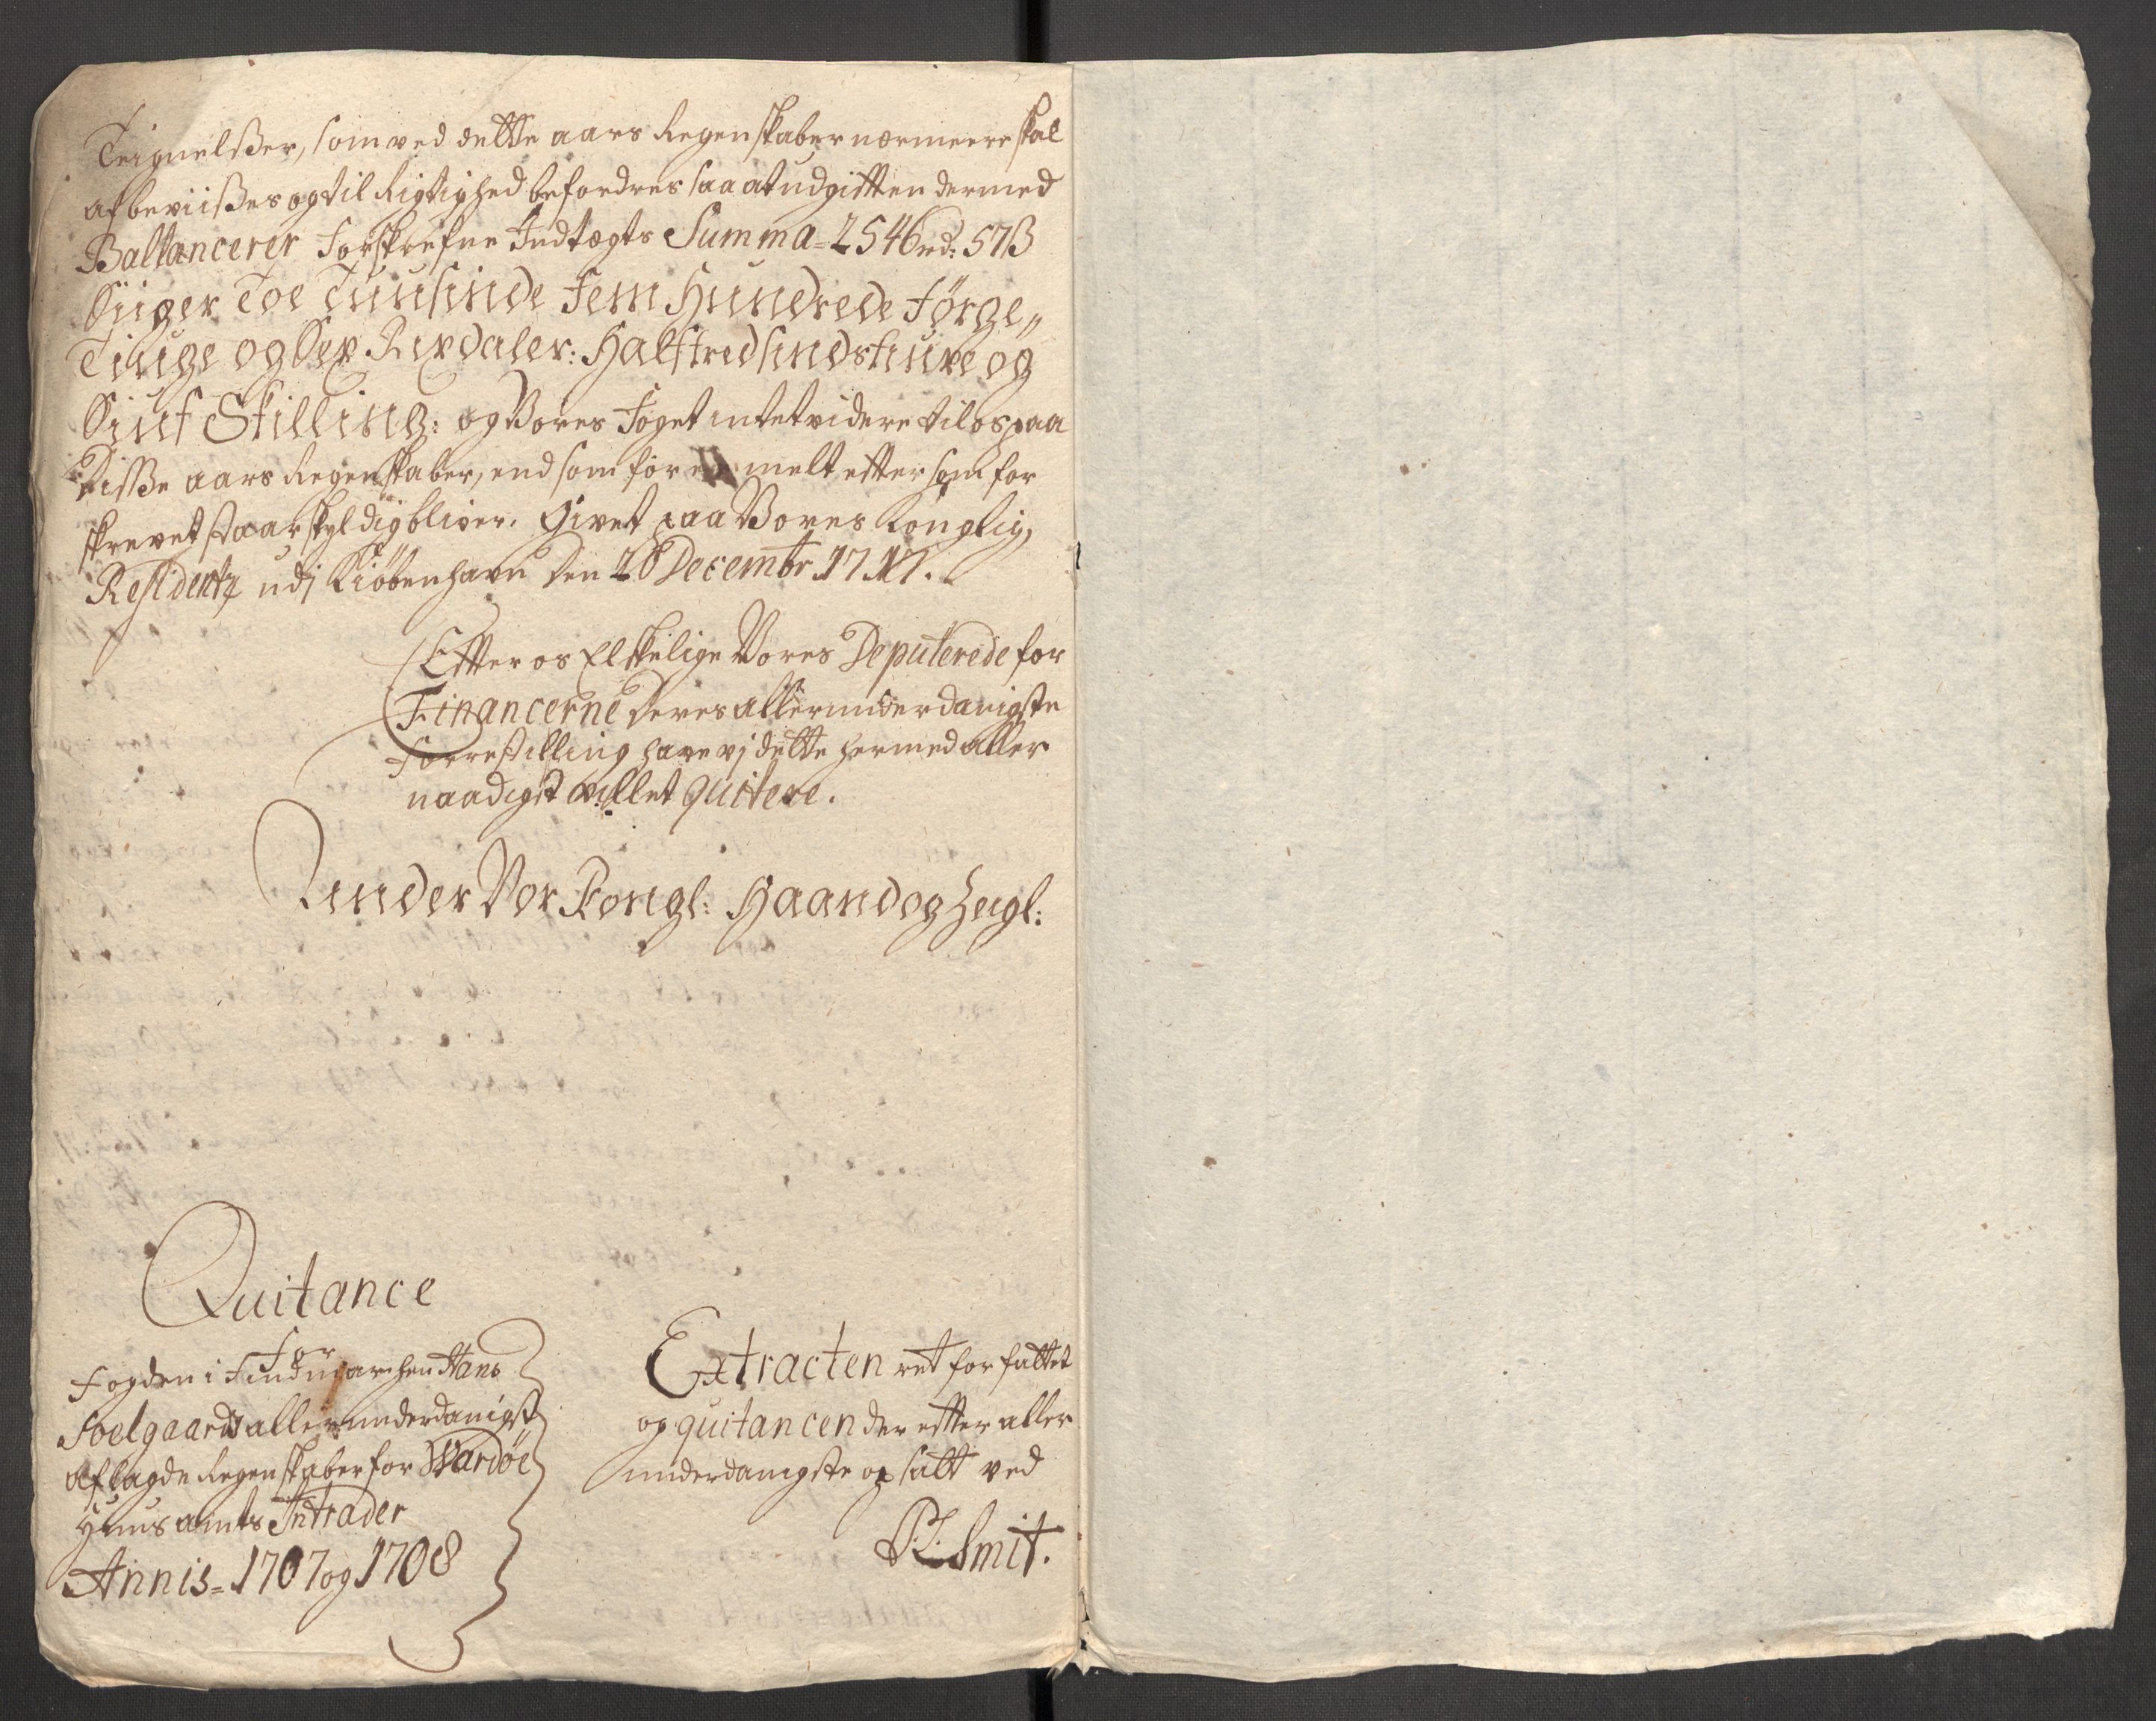 Teignelßer, som ved dette aars Regenskaber nærmeere skal
afbeviißes og til Rigtighed befordres saa at udgifften dermed
Ballancerer forskrefne Indtægts Summa = 2546 rd: 57 ß
Siiger Toe Tuusinde Fem Hundrede Førge„
Tiuge og Sex Rixdaler: Halftredsindstiuve og
Siuf Skilling: og Vores Foget intet videre til os paa
disse aars Regenskaber, end som før er melt effter som for
skrevet staar skyldig bliver. Givet paa Vores Konglig
Residentz udj Kiöbenhavn den 28 Decembr 1717.
Effter os Elskelige Vores Deputerede for
Financerne deres allerunderdanigste
Forrestilling have vj dette hermed aller
naadigst villet quitere.
Under Vor Kongl: Haand og Zeigl:
Quitance
For
Fogden i Findmarchen Hans
Soelgaards allerunderdanigst
aflagde Regenskaber for Wardöe
Huus amts Intrader
Annis = 1707 og 1708
Extracten ret forfattet
og quitancen der effter aller
underdanigste opsatt ved
P L Smit.